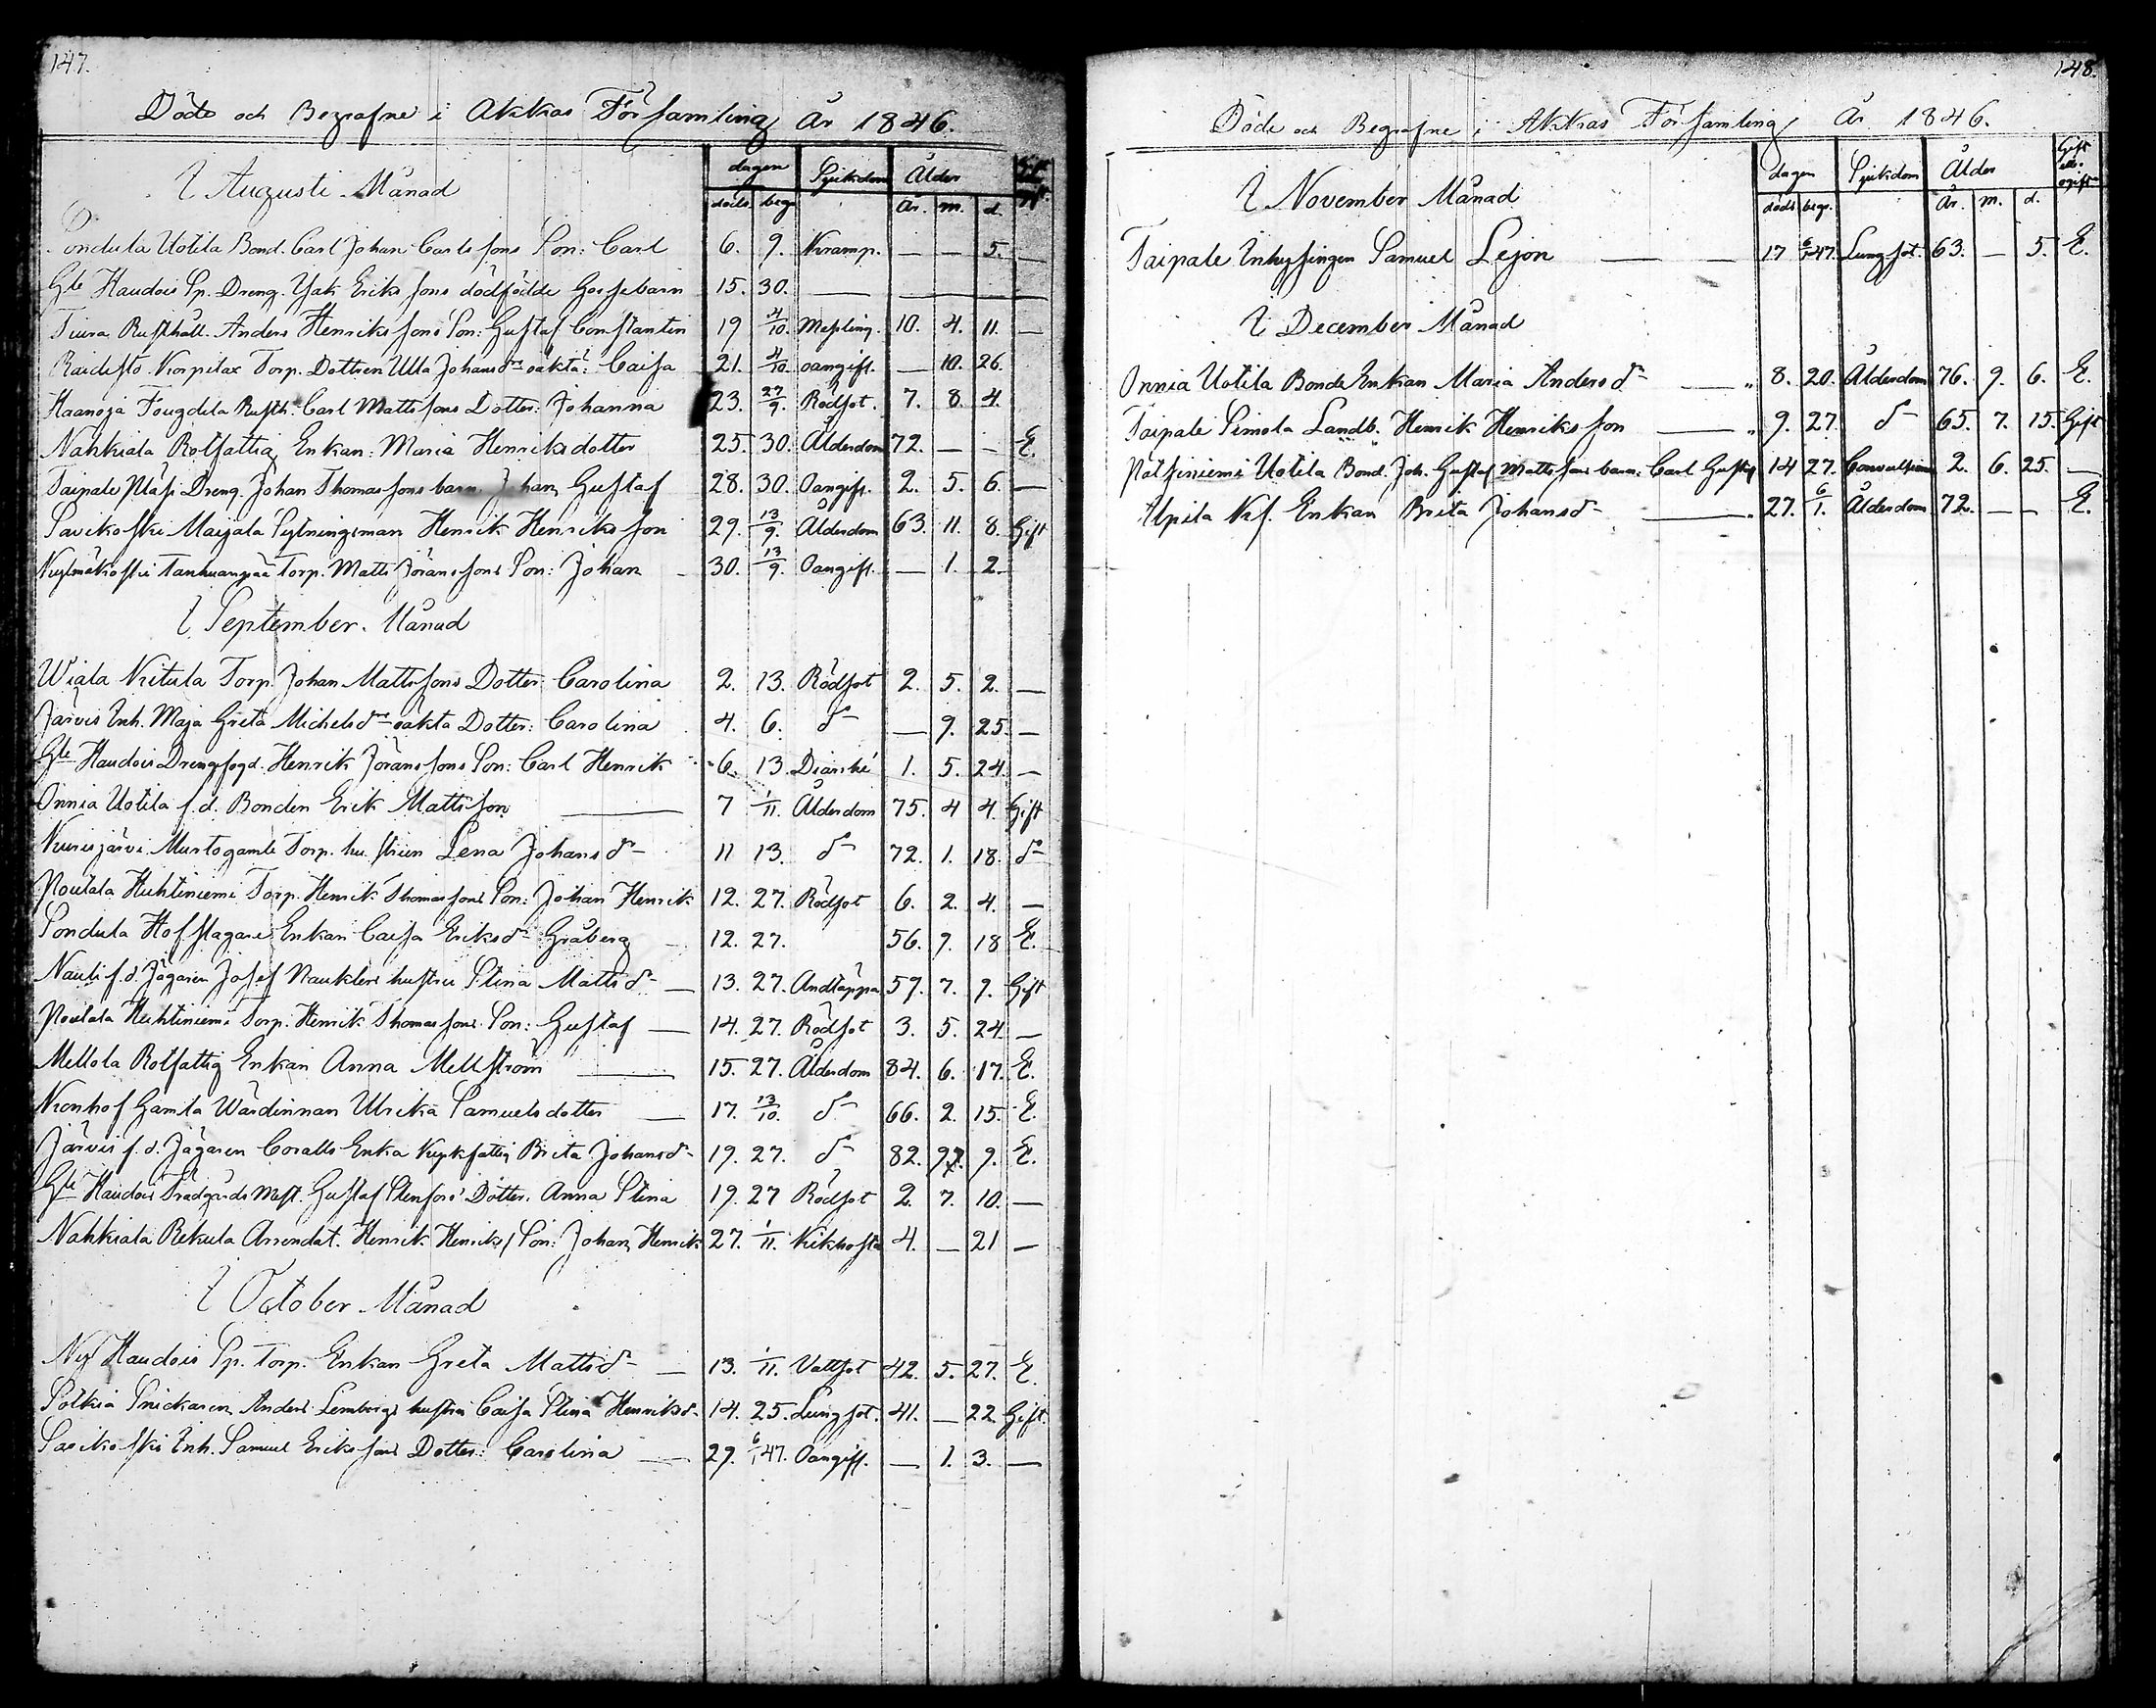 147.
Döde och Begrafne i Akkas Församling År 1846.
I Augusti Månad
dagen Sjukdom Ålder
död. begr. År. m. d.
Sondula Uotila Bond. Carl Johan Carlssons Son: Carl 6. 9. Kramp. — — 5. —
Gle Haudois Sp. Dreng. Isak Erikssons dödfödde Gossebarn 15. 30. —
Tiura Rusthåll. Anders Henrikssons Son: Gustaf Constantin 19 4/10. Messling. 10. 4. 11. —
Raidisto Korpilax Torp. Dottren Ulla Johansdrs oäkta: Caisa 21. 4/10. oangift. — 10. 26.
Haanoja Fougdila Rusth. Carl Mattssons Dotter: Johanna 23. 27/9. Rödsot. 7. 8. 4.
Nahkiala Rotfattig Enkan: Maria Henriksdotter 25. 30. Ålderdom 72. — — E.
Taipale Dreng. Johan Thomassons barn Johan Gustaf 28. 30. Oangift. 2. 5. 6. —
Savikoski Maijala Sytningsman Henrik Henriksson 29. 13/9. Ålderdom 63. 11. 8. Gift
Kylmäkoski Tanhuanpää Torp. Matts Jöranssons Son: Johan 30. 13/9. Oangift. — 1. 2.
I September Månad
Wiala Kitula Torp. Johan Mattssons Dotter: Carolina 2. 13. Rödsot 2. 5. 2. —
Järvis Inh. Maja Greta Michelsdrs oäkta Dotter: Carolina 4. 6. do — 9. 25. —
Gle Haudois Drengfogd. Henrik Jöranssons Son: Carl Henrik 6. 13. Diarrhé 1. 5. 24. —
Onnia Uotila f.d. Bonden Erik Mattsson — 7 1/11. Ålderdom 75. 4 4. Gift
Kurisjärvi Murto gamle Torp. hustrun Lena Johansdr 11 13. do 72. 1. 18. do
Poutala Huhtiniemi Torp. Henrik Thomassons Son: Johan Henrik 12. 27. Rödsot 6. 2. 4. —
Sondula Hofslagare Enkan Caisa Eriksdr Gråberg 12. 27. 56. 9. 18 E.
Nauli f.d. Jägaren Josef Nauklers hustru Stina Mattsdr — 13. 27. Andtäppa 59. 7. 9. Gift
Poutala Huhtiniemi Torp. Henrik Thomassons Son: Gustaf — 14. 27. Rödsot 3. 5. 24. —
Mellola Rotfattig Enkan Anna Mellström — 15. 27. Ålderdom 84. 6. 17. E.
Kronhof Gamla Wärdinnan Ulrika Samuelsdotter — 17. 13/10. do 66. 2. 15. E.
Järvis f.d. Jägaren Coralls Enka Kyrkfattig Brita Johansdr 19. 27. do 82. 9. 9. E.
Gle Haudois Trädgårds Mest. Gustaf Stenfors Dotter. Anna Stina 19. 27 Rödsot 2. 7. 10. —
Nahkiala Rekula Arrendat. Henrik Henrikss Son: Johan Henrik 27. 1/11. Kikhosta 4. — 21 —
I October Månad
Ny Haudois Sp. Torp. Enkan Greta Mattsdr — 13. 1/11. Vattsot 42. 5. 27. E.
Sotkia Snickaren Anders Lembergs hustru Caisa Stina Henriksdr 14. 25. Lungsot. 41. — 22. Gift.
Savikoski Inh. Samuel Erikssons Dotter: Carolina — 29. 6/1 47. Oangift. — 1. 3. —
148.
Döde och Begrafne i Akkas Församling År 1846.
I November Månad
dagen Sjukdom Ålder Gift ell. ogift
död. begr. År. m. d.
Taipale Inhysingen Samuel Lejon — — 17 6/1 47. Lungsot. 63. — 5. E.
I December Månad
Onnia Uotila Bonde Enkan Maria Andersdr — 8. 20. Ålderdom 76. 9. 6. E.
Taipale Simola Landb. Henrik Henriksson — 9. 27. do 65. 7. 15. Gift
Pätsiniemi Uotila Bond. Joh. Gustaf Mattssons barn: Carl Gustaf 14 27. Convulsion 2. 6. 25. —
Alpila Enkan Brita Johansdr — 27. 6/1. Ålderdom 72. — — E.